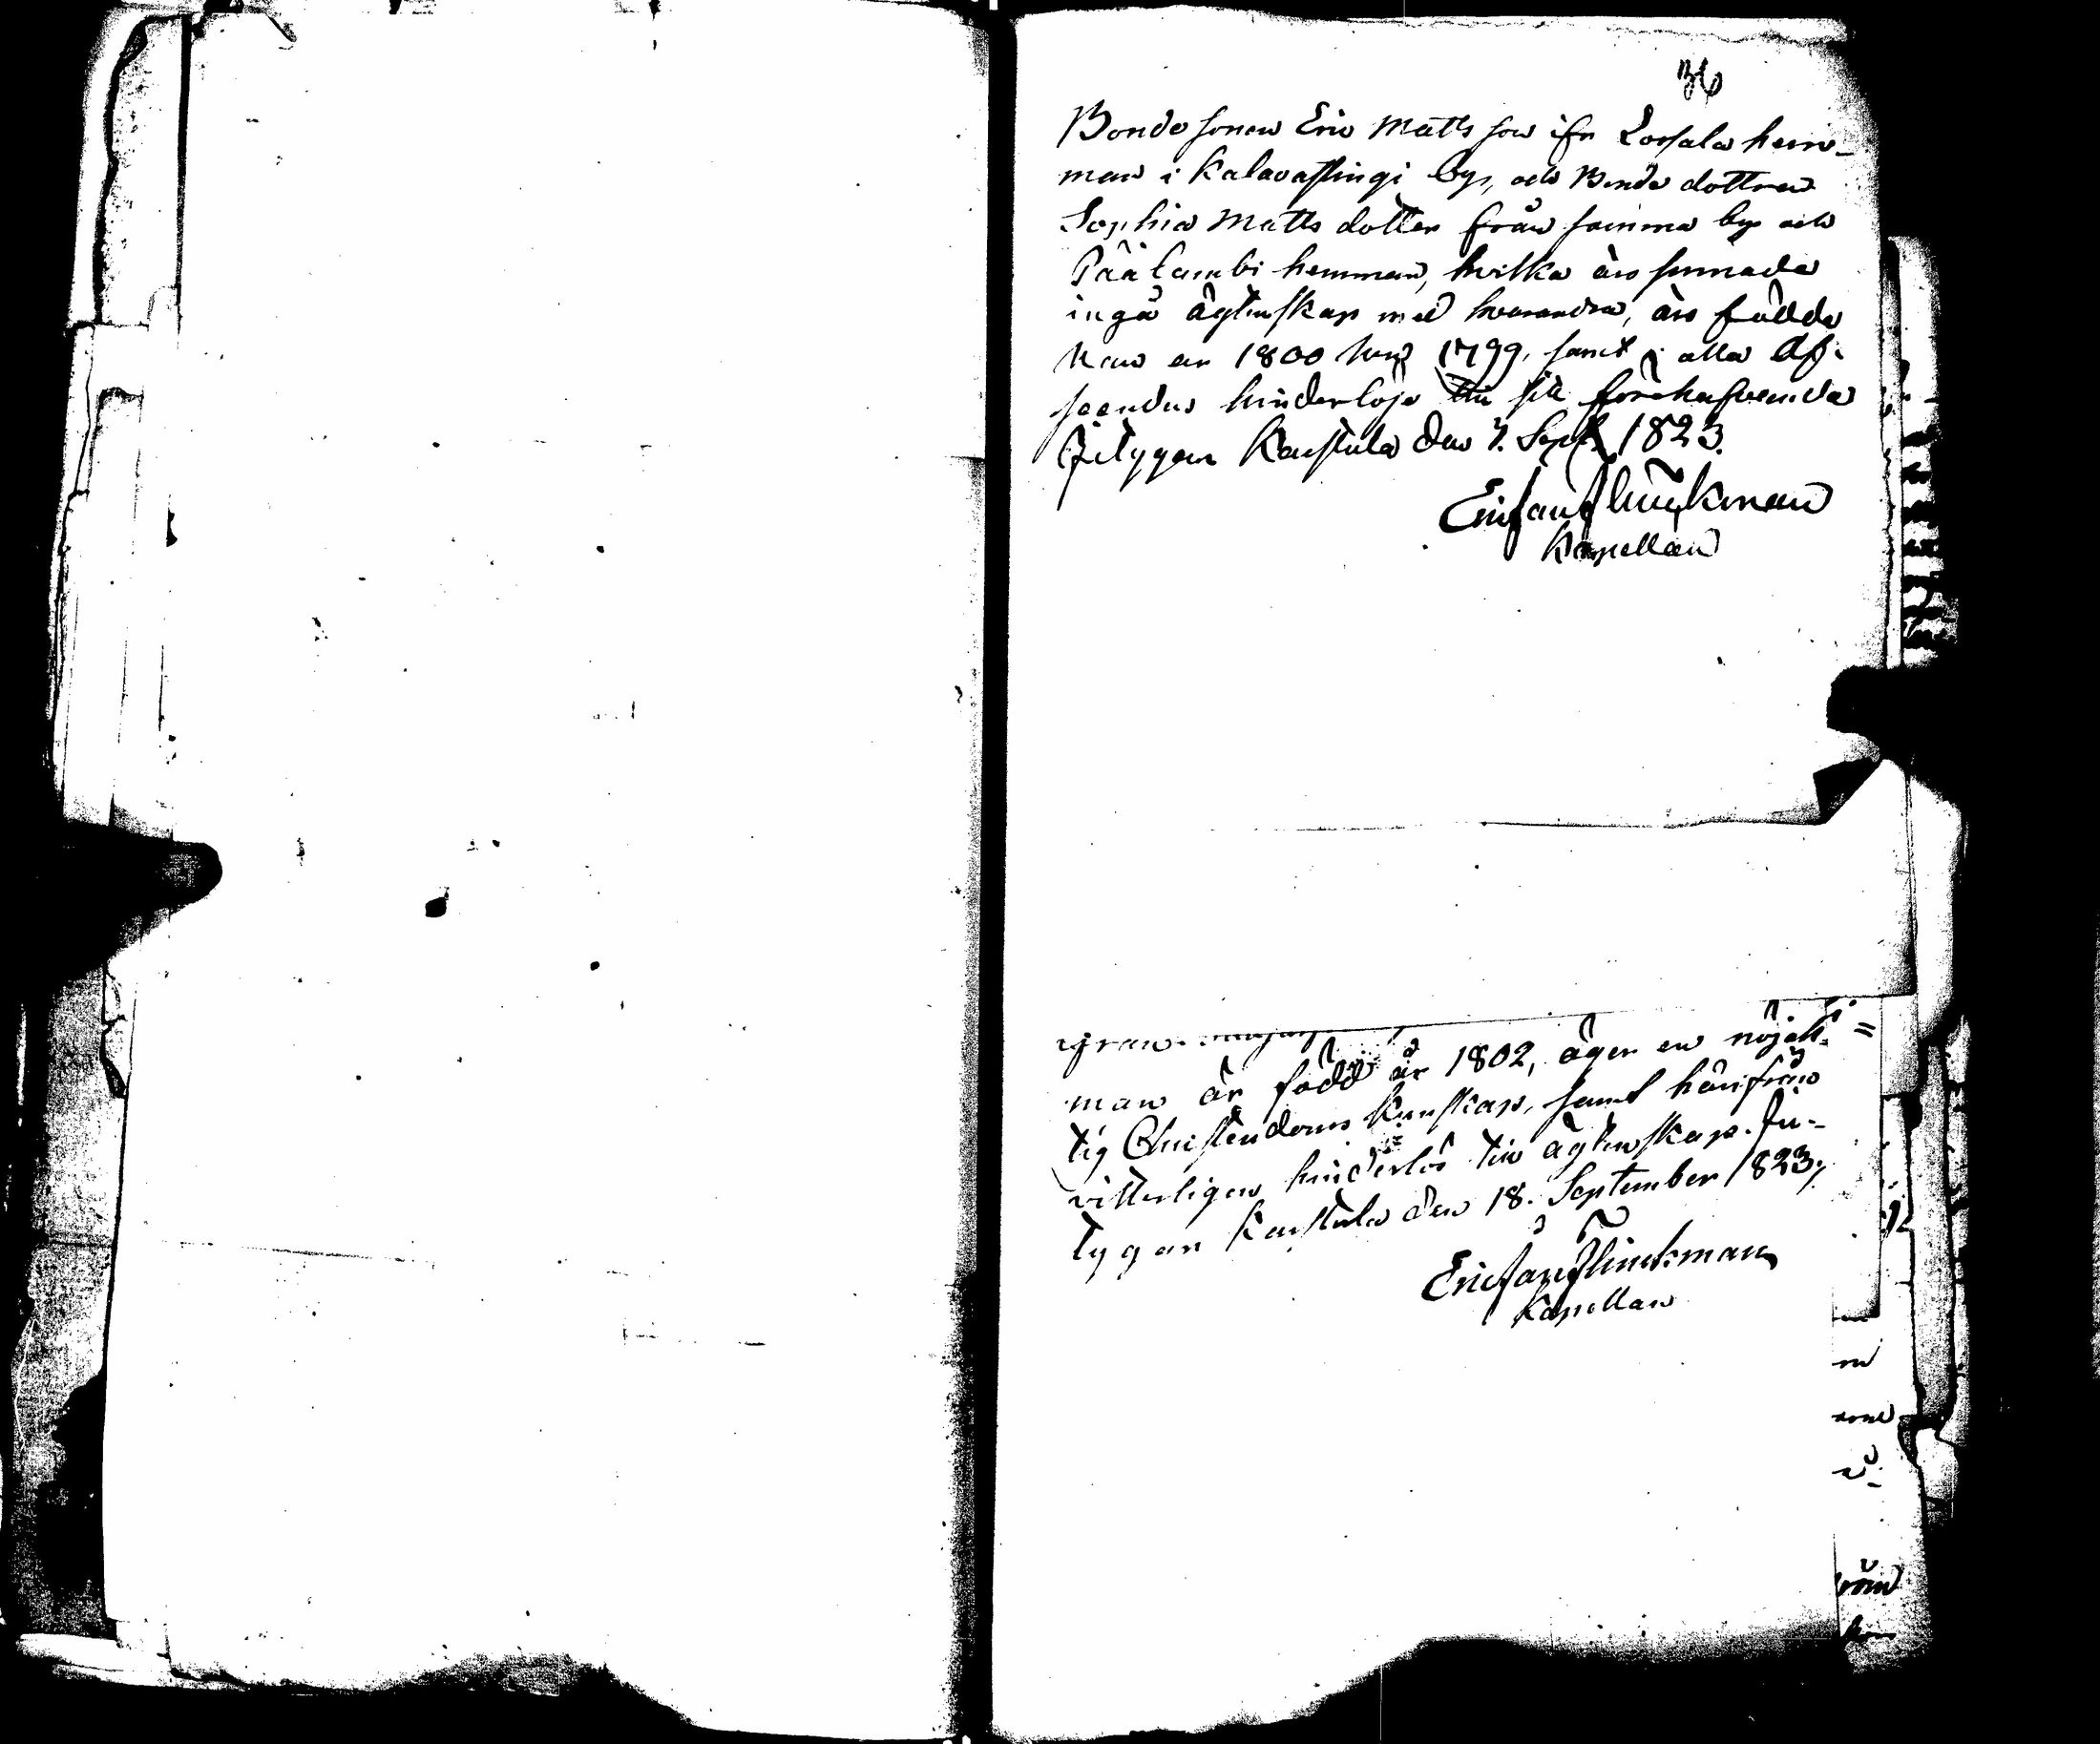 36
Bonde sonen Eric Matts son ifr Loxsala hem-
man i Kalavaslingi by, och Bonde dottren
Sophia Matts dotter från samma by och
Päälambi hemman, hvilka äro sinnade
ingå ägtenskap med hvarandra, äro födde
han år 1800 hon 1799, samt i alla af-
seenden hinderlöse till sitt förehafvande
Betygar Karstula den 7. Sept. 1823.
Eric Joh Flinckman
Kapellan
man är född år 1802, äger en nöjak-
tig Christendoms kunskap, samt härifrån
vitterligen hinderlös till ägtenskap. Be-
tygar Karstula den 18. September 1823,
Eric Joh Flinckman
Kapellan